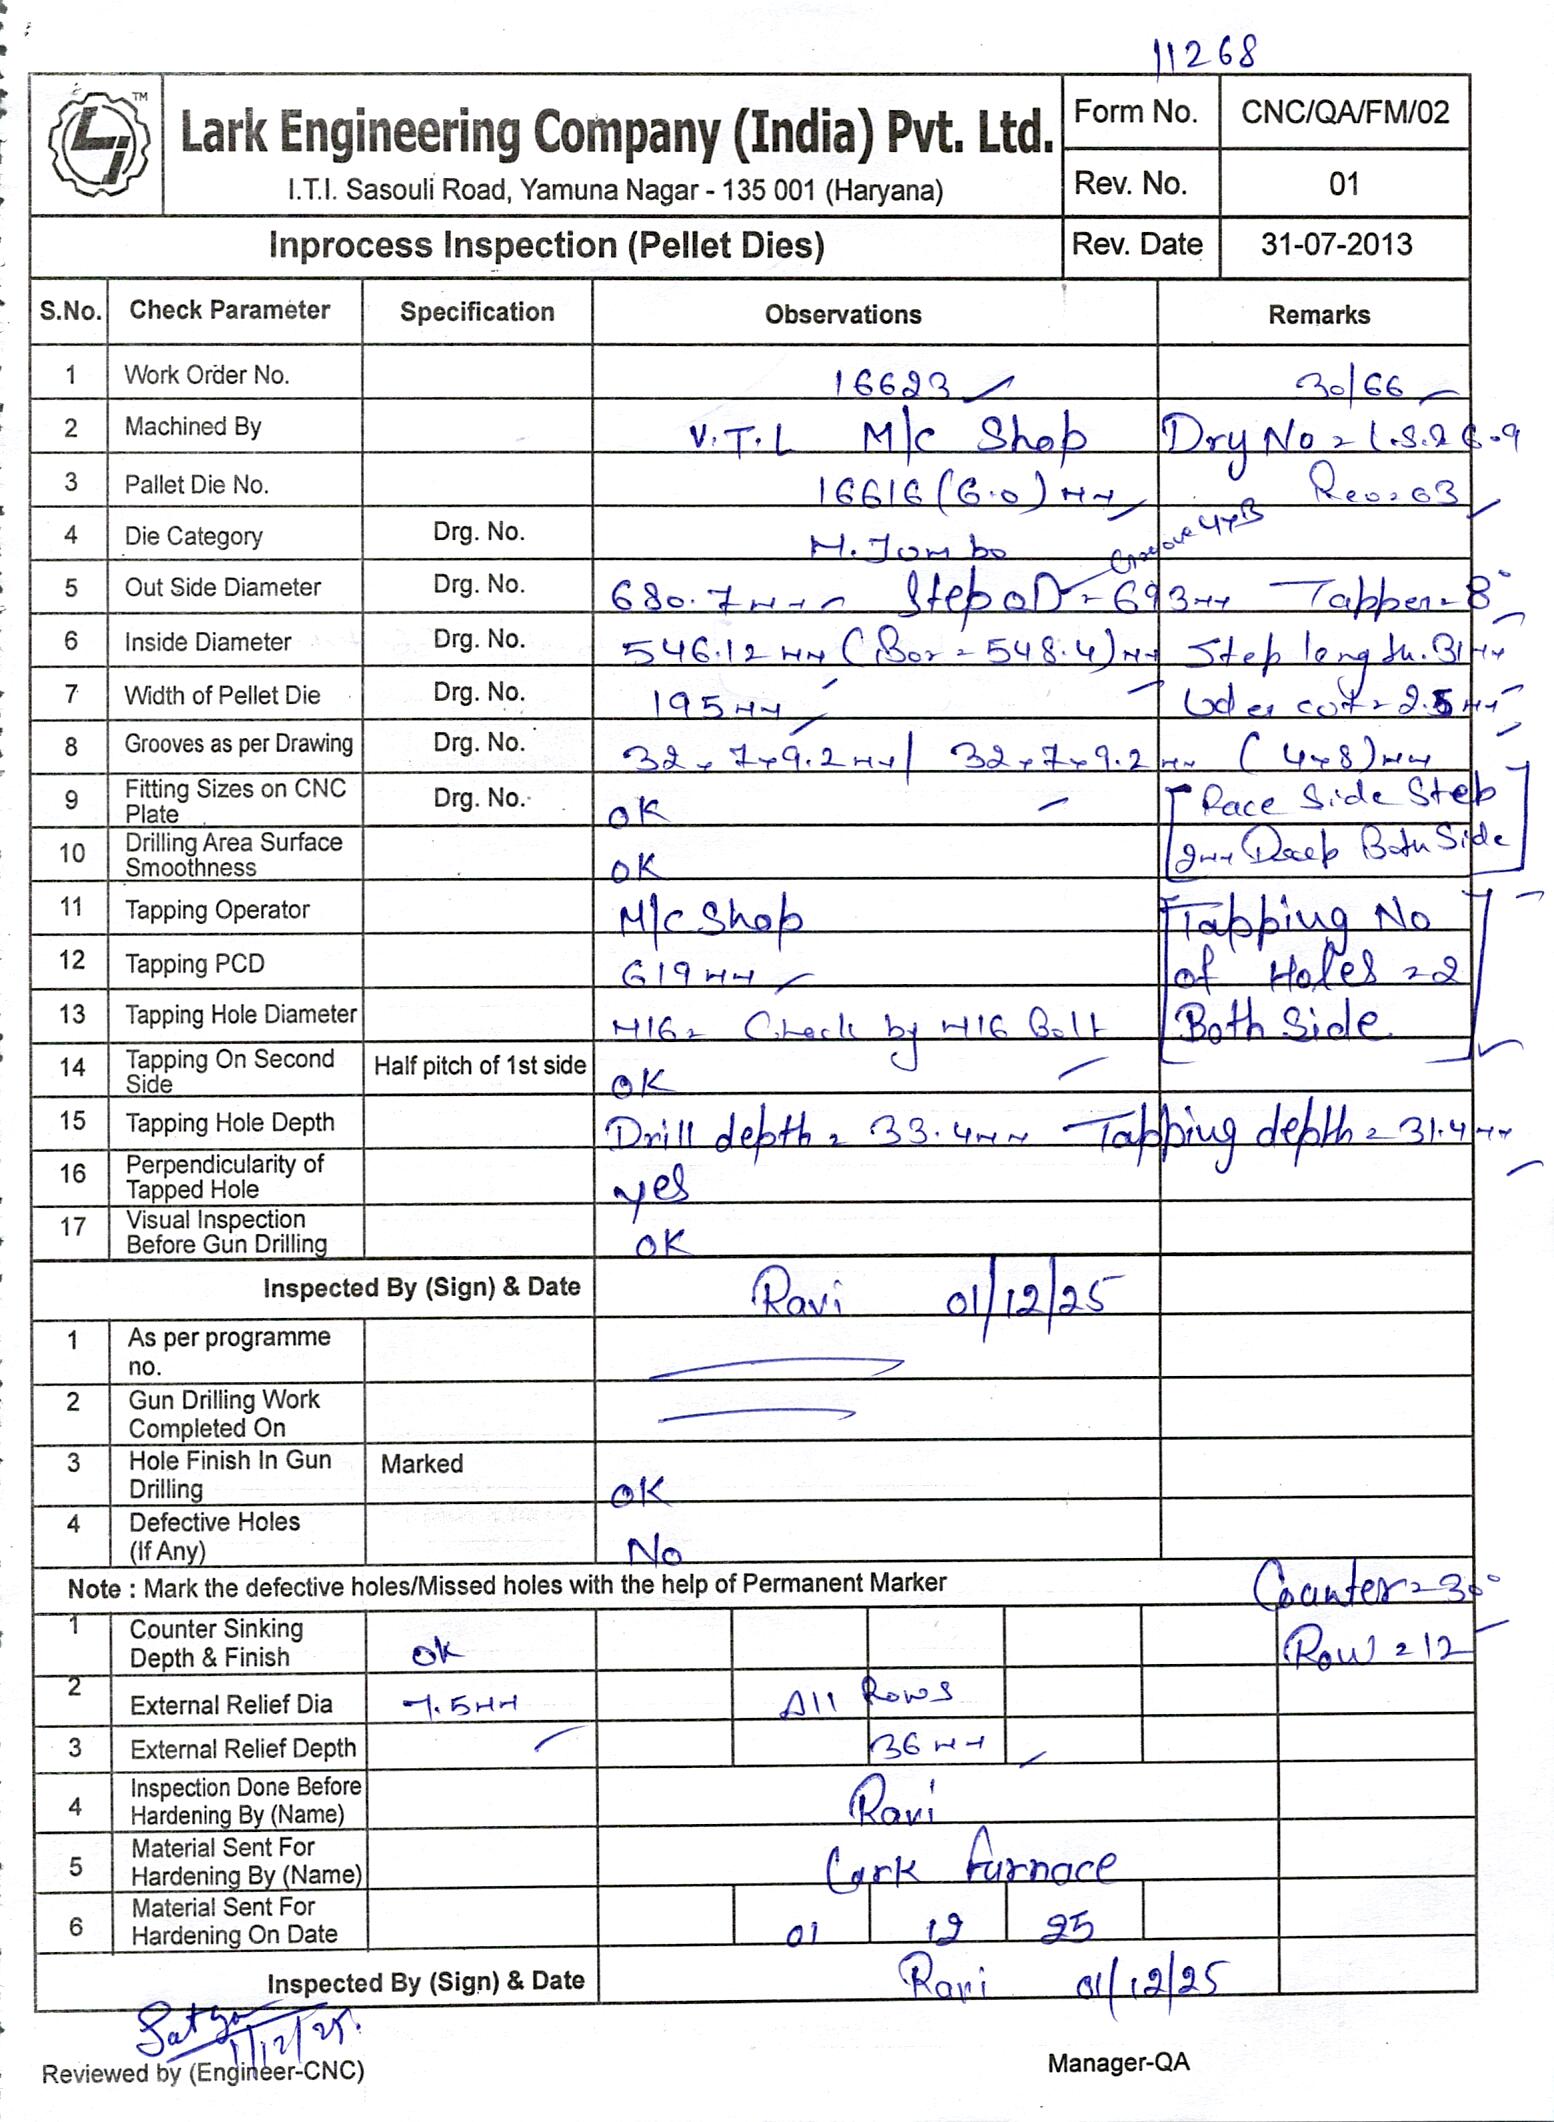 11268
TM
Lark Engineering Company (India) Pvt. Ltd.
I.T.I. Sasouli Road, Yamuna Nagar - 135 001 (Haryana)
Form No. CNC/QA/FM/02
Rev. No. 01
Inprocess Inspection (Pellet Dies) Rev. Date 31-07-2013
S.No. Check Parameter Specification Observations Remarks
1 Work Order No. 16623 30/66
2 Machined By V.T.L M/c Shop Dry No = L.S.26.9
3 Pallet Die No. 16616 (6.0) mm Rev = 03
4 Die Category Drg. No. H. Jombo Groove 4x8
5 Out Side Diameter Drg. No. 680.7mm Step OD = 693mm Tapper = 8°
6 Inside Diameter Drg. No. 546.12mm (Bor = 548.4)mm Step length. 31mm
7 Width of Pellet Die Drg. No. 195mm Uder cut = 2.5mm
8 Grooves as per Drawing Drg. No. 32x7x9.2mm/ 32x7x9.2mm (4x8)mm
9 Fitting Sizes on CNC Plate Drg. No. OK Race Side Step
10 Drilling Area Surface Smoothness OK 2mm Deep Both Side
11 Tapping Operator M/c Shop Tapping No
12 Tapping PCD 619mm of Holes = 2
13 Tapping Hole Diameter M16 = Check by M16 Bolt Both Side
14 Tapping On Second Side Half pitch of 1st side OK
15 Tapping Hole Depth Drill depth = 33.4mm Tapping depth = 31.4mm
16 Perpendicularity of Tapped Hole yes
17 Visual Inspection Before Gun Drilling OK
Inspected By (Sign) & Date Ravi 01/12/25
1 As per programme no.
2 Gun Drilling Work Completed On
3 Hole Finish In Gun Drilling Marked OK
4 Defective Holes (If Any) No
Note : Mark the defective holes/Missed holes with the help of Permanent Marker Counter = 30°
1 Counter Sinking Depth & Finish OK Row = 12
2 External Relief Dia 7.5mm All Rows
3 External Relief Depth 36mm
4 Inspection Done Before Hardening By (Name) Ravi
5 Material Sent For Hardening By (Name) Lark Furnace
6 Material Sent For Hardening On Date 01 12 25
Inspected By (Sign) & Date Ravi 01/12/25
Satya 1/12/25.
Reviewed by (Engineer-CNC) Manager-QA